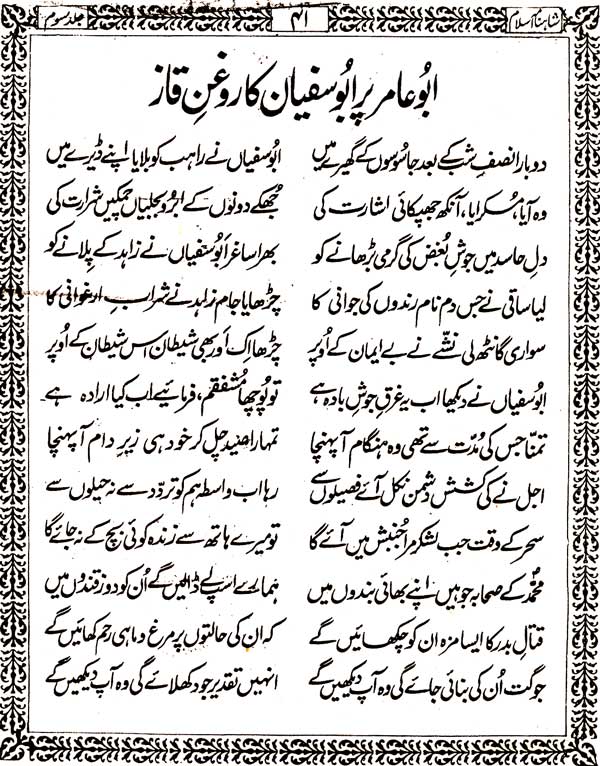 شاہنامہ اسلام ۴۱ جلد سوم
ابُو عامر پر ابُو سفیان کا روغنِ قاز
دوبارا نصف شب کے بعد جاسُوسوں کے گھیرے میں ابُو سفیاں نے راہب کو بلایا اپنے ڈیرے میں
وہ آیا، مُسکرایا، آنکھ جھپکائی اشارت کی جُھکے دونوں کے ابرو بجلیاں چمکیں شرارت کی
دلِ حاسد میں جوشِ بُغض کی گرمی بڑھانے کو بھرا ساغر ابُو سفیاں نے زاہد کے پلانے کو
لیا ساقی نے جس دم نام رندوں کی جوانی کا چڑھایا جام زاہد نے شرابِ ارغوانی کا
سواری گانٹھ لی نشّے نے بے ایمان کے اُوپر چڑھا اِک اَور بھی شیطان اس شیطان کے اُوپر
ابُو سفیاں نے دیکھا اب یہ غرقِ جوشِ بادہ ہے تو پُوچھا مُشفقم، فرمائیے اب کیا ارادہ ہے
تمنّا جس کی مُدّت سے تھی وہ ہنگام آ پہنچا تمہارا صَید چل کر خود ہی زیرِ دام آ پہنچا
اجل نے کی کشش دشمن نکل آئے فصیلوں سے رہا اب واسطہ ہم کو تردّد سے نہ حیلوں سے
سحر کے وقت جب لشکر مرا جُنبش میں آئے گا تو میرے ہاتھ سے زندہ کوئی بچ کے نہ جائے گا
محمّدؐ کے صحابہ جو ہیں اپنے بھائی بندوں میں ہمارے اسپ لے ڈالیں گے اُن کو دوز قندوں میں
قتالِ بدر کا ایسا مزہ ان کو چکھائیں گے کہ ان کی حالتوں پر مرغ و ماہی رحم کھائیں گے
جو گت اُن کی بنائی جائے گی وہ آپ دیکھیں گے انہیں تقدیر جو دکھلائے گی وہ آپ دیکھیں گے